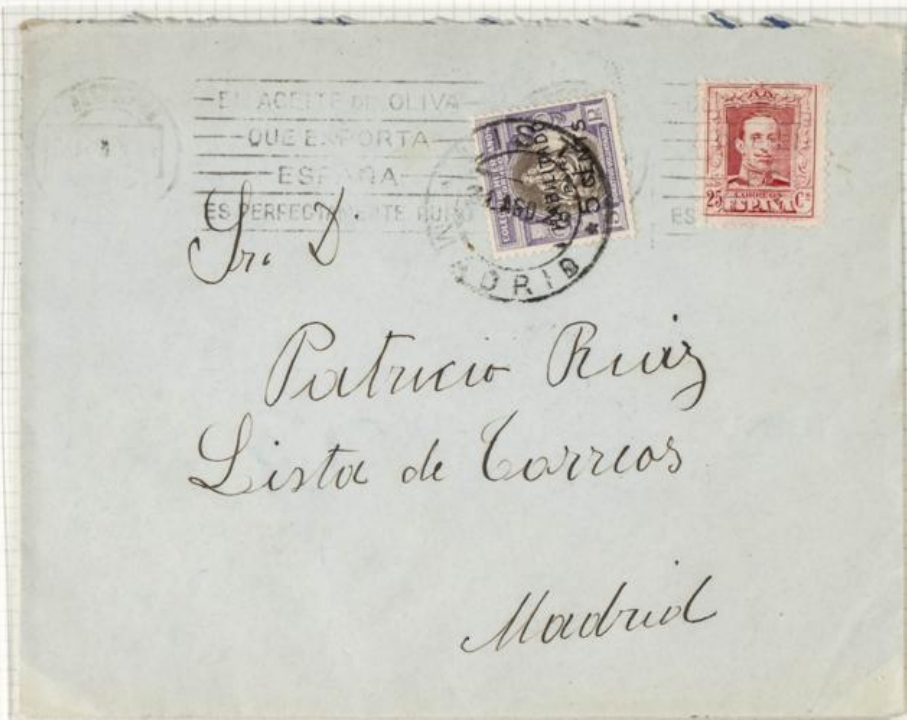 EL ACEITE DE OLIVA
QUE EXPORTA
ESPAÑA
ES PERFECTAMENTE PURO
ES
MADRID
HABILITADO
5 CENTS
25 CORREOS Cs
ESPAÑA
Sr. D
Patricio Ruiz
Lista de Correos
Madrid